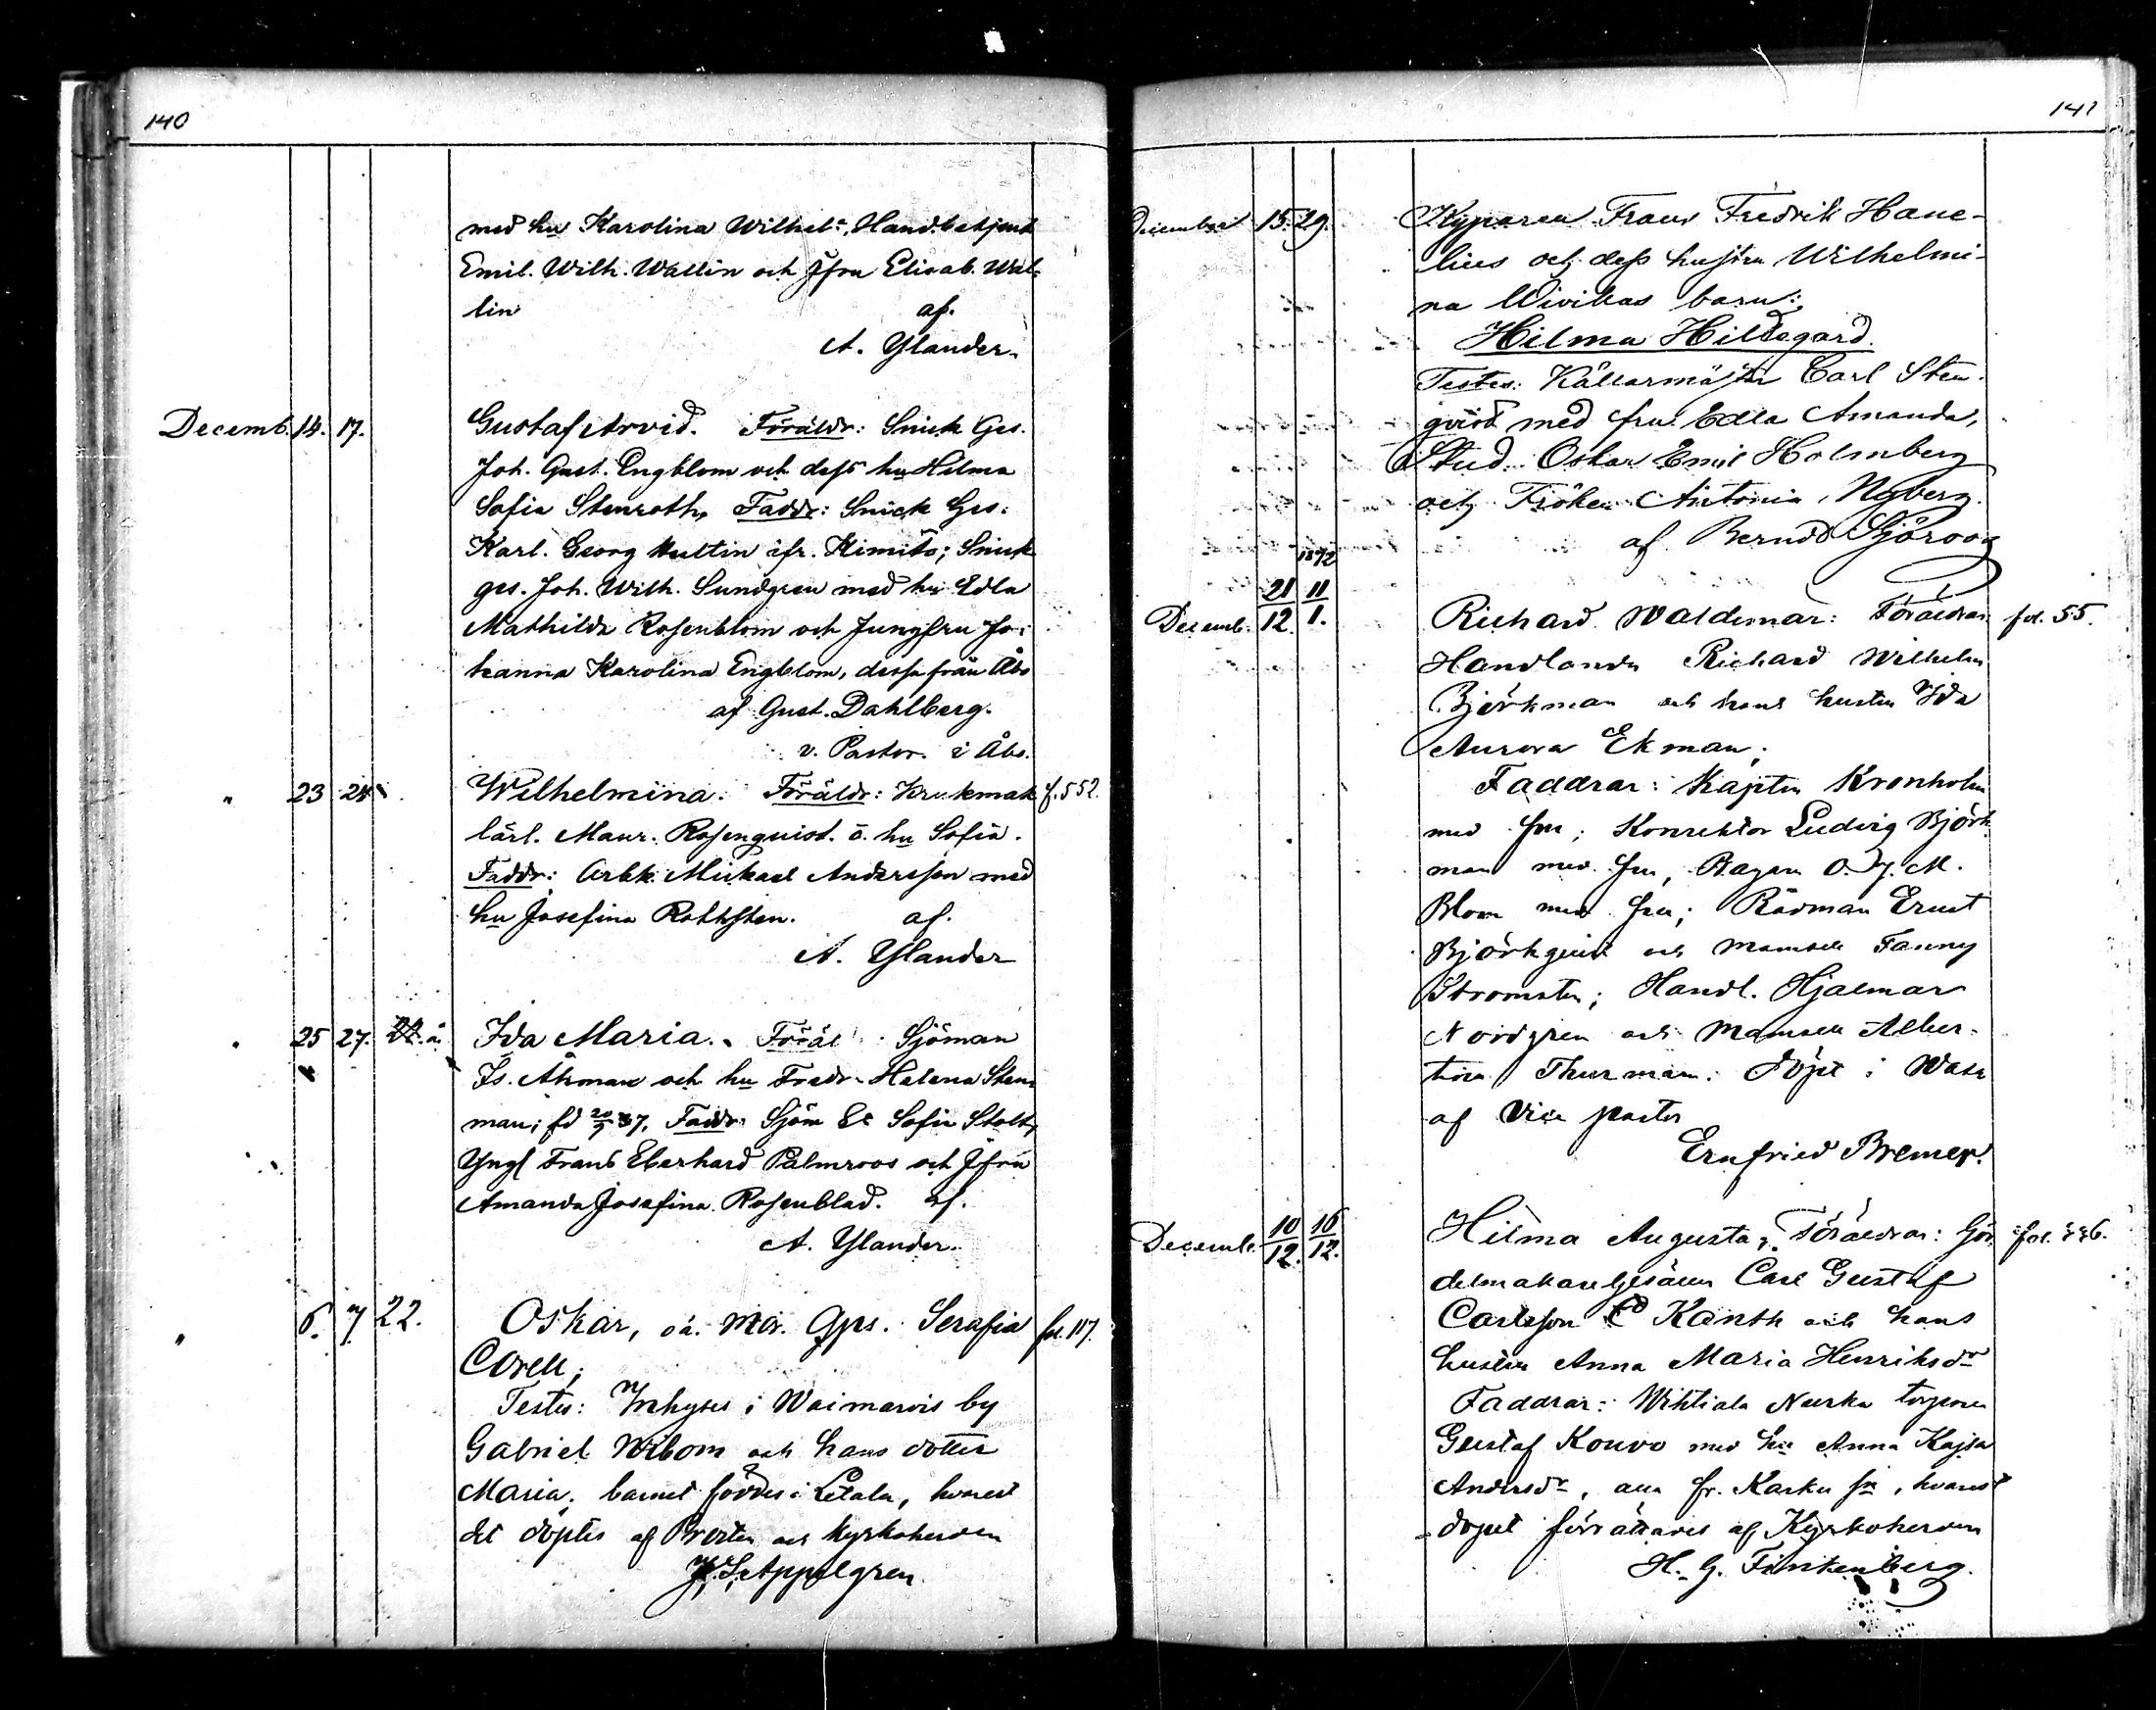 140
med hu Karolina Wilhel:a, Handbetjent
Emil. Wilh. Wallin och Jfru Elisab. Wal-
lin af.
A. Ylander.
Decemb. 14. 17. Gustaf Arvid. Föräldr: Snick Ges.
Joh. Gust. Engblom och dess hu Hilma
Sofia Stenroth, Faddr: Snick Ges.
Karl. Georg Hultin ifr. Kimito; Snick
ges. Joh. Wilh. Sundgren med hu Edla
Mathilda Rosenblom och Jungfru Jo-
hanna Karolina Engblom, dessa från Åbo
af Gust. Dahlberg.
v. Pastor. i Åbo.
" 23 24 Wilhelmina. Föräldr: Krukmak f. 552.
lärl. Maur. Rosenquist. o. hu Sofia.
Faddr: Arbk. Mickael Andersson med
hu Josefina Rothsten. af.
A. Ylander
" 25 27. Ida Maria. Föräl Sjöman
Is. Åkman och hu Fredr. Helena Sten-
man; fd 20/9 37. Faddr. Sjöm Sofia Stolt,
Yngl Frans Eberhard Palmroos och Jfru
Amanda Josefina Rosenblad. af.
A. Ylander.
" 6. 7 22. Oskar, oä. Mor. Gps. Serafia fol. 117.
Corell;
Testes: Inhyses i Waimarois by
Gabriel Wibom och hans dotter
Maria. barnet föddes i Letala, hvarest
det döptes af Prosten och Kyrkoherden
Appelgren
141
December 15. 29. Kyparen Frans Fredrik Hane-
lius och dess hustru Wilhelmi-
na Wivikas barn:
Hilma Hildegard.
Testes: Källarmästar Carl Sten-
qvist med fru Edla Amanda,
Stud. Oskar Emil Holmberg
och Fröken Antonia Nyberg.
af Berndt Sjöroos
1872
Decemb. 21/12. 11/1. Richard Waldemar: Föräldrar fol. 55.
Handlanden Richard Wilhelm
Björkman och hans hustru Ida
Aurora Ekman;
Faddrar: Kapten Kronholm
med fru; Konrektor Ludvig Björk
man med fru, Bagare O. J. M.
Blom med fru; Rådman Ernst
Björkquist och Mamsell Fanny
Stromsten; Handl. Hjalmar
Nordgren och Mamsell Alber-
tina Thurman. Döpt i Wasa
af Vice pastor
Ernfried Bremer.
Decemb. 10/12. 16/12. Hilma Augusta, Föräldrar: Gör- fol. 556.
delmakaregesällen Carl Gustaf
Carlsson Kanth och hans
hustru Anna Maria Henriksdr
Faddrar: Wihtiala Nurka torparen
Gustaf Kouvo med hu Anna Kajsa
Andersdr, alla fr. Karku sn, hvarest
dopet förrättades af Kyrkoherden
H. G. Finkenberg.